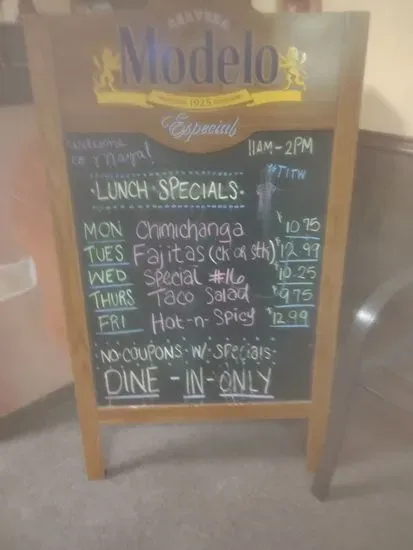 CERVEZA
Modelo
1925
Especial
Welcome
to Maya!
11AM-2PM
LUNCH SPECIALS
MON Chimichanga $10.75
TUES Fajitas (ck or stk) $12.99
WED Special #16 $10.25
THURS Taco Salad $9.75
FRI Hot-n-Spicy $12.99
NO COUPONS W/ Specials
DINE-IN-ONLY